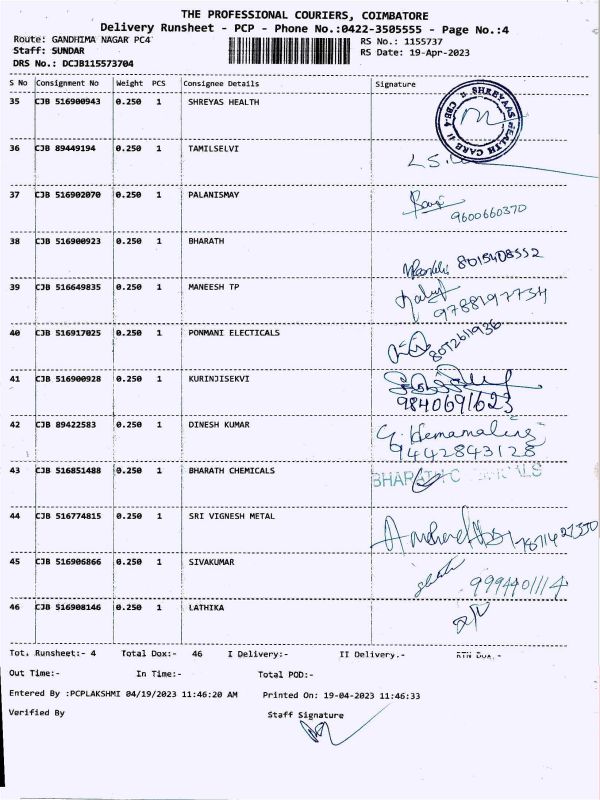 THE PROFESSIONAL COURIERS, COIMBATORE
Delivery Runsheet - PCP - Phone No.:0422-3505555 - Page No.:4
Route: GANDHIMA NAGAR PC4
RS No.: 1155737
Staff: SUNDAR
RS Date: 19-Apr-2023
DRS No.: DCJB115573704
S No Consignment No Weight PCS Consignee Details Signature
35 CJB 516900943 0.250 1 SHREYAS HEALTH
SHREYAAS HEALTH CARE CBE-4
36 CJB 89449194 0.250 1 TAMILSELVI
37 CJB 516902070 0.250 1 PALANISMAY
9600660370
38 CJB 516900923 0.250 1 BHARATH
8015408552
39 CJB 516649835 0.250 1 MANEESH TP
9788197734
40 CJB 516917025 0.250 1 PONMANI ELECTICALS
8072611936
41 CJB 516900928 0.250 1 KURINJISEKVI
9840691623
42 CJB 89422583 0.250 1 DINESH KUMAR
G. Hemamalini
9442843128
43 CJB 516851488 0.250 1 BHARATH CHEMICALS
BHARATH CHEMICALS
44 CJB 516774815 0.250 1 SRI VIGNESH METAL
45 CJB 516906866 0.250 1 SIVAKUMAR
9994401114
46 CJB 516908146 0.250 1 LATHIKA
Tot. Runsheet:- 4 Total Dox:- 46 I Delivery:- II Delivery.- RTN Dox.-
Out Time:- In Time:- Total POD:-
Entered By :PCPLAKSHMI 04/19/2023 11:46:20 AM Printed On: 19-04-2023 11:46:33
Verified By Staff Signature